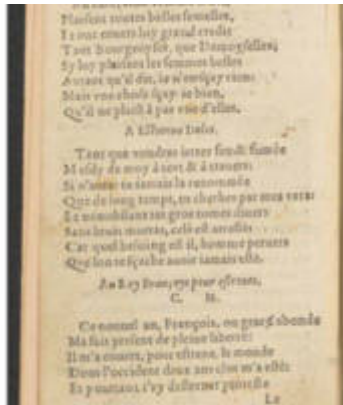 Plaisent toutes belles femelles,
Et ont envers luy grand credit
Tant Bourgeoyses, que Damoyselles:
Sy luy plaisent les femmes belles
Autant qu'il dit, ie n'en sçay rien:
Mais vne chose sçay-ie bien,
Qu'il ne plaist à pas vne d'elles.
A Estienne Dolet.
Tant que voudras ietter feu & fumée
Mesdy de moy à tort & à trauers:
Si n'auras tu iamais la renommée
Que de long temps, tu cherches par mes vers:
Et nonobstant tes gros tomes diuers
Sans bruit mourras, cela est arresté:
Car quel besoing est il, homme peruers
Que l'on te sçache auoir iamais esté.
Au Roy pour estrenes,
C. M.
Ce nouuel an, François, ou grace abonde
Ma fait present de pleine liberté:
Il m'a ouuert, pour estrene, le monde
Dont l'occident deux ans clos m'a esté:
Et pourtant i'ay
Le